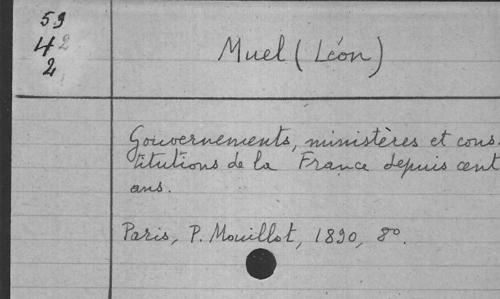 59
42
2
Muel (Léon)
Gouvernements, ministères et cons-
titutions de la France depuis cent
ans.
Paris, P. Mouillot, 1890, 8º.